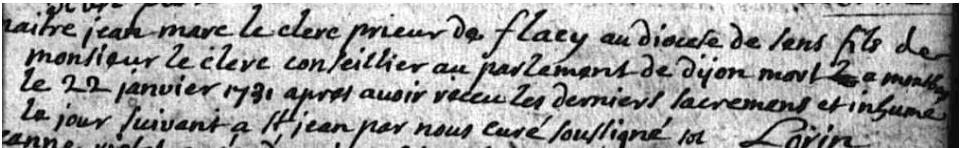 maitre jean marc le clerc prieur de flacy au diocese de sens fils de
monsieur le clerc conseillier au parlement de dijon mort a montbar
le 22 janvier 1731 apres avoir receu les derniers sacremens et inhumé
le jour suivant a St jean par nous curé soussigné Lorin